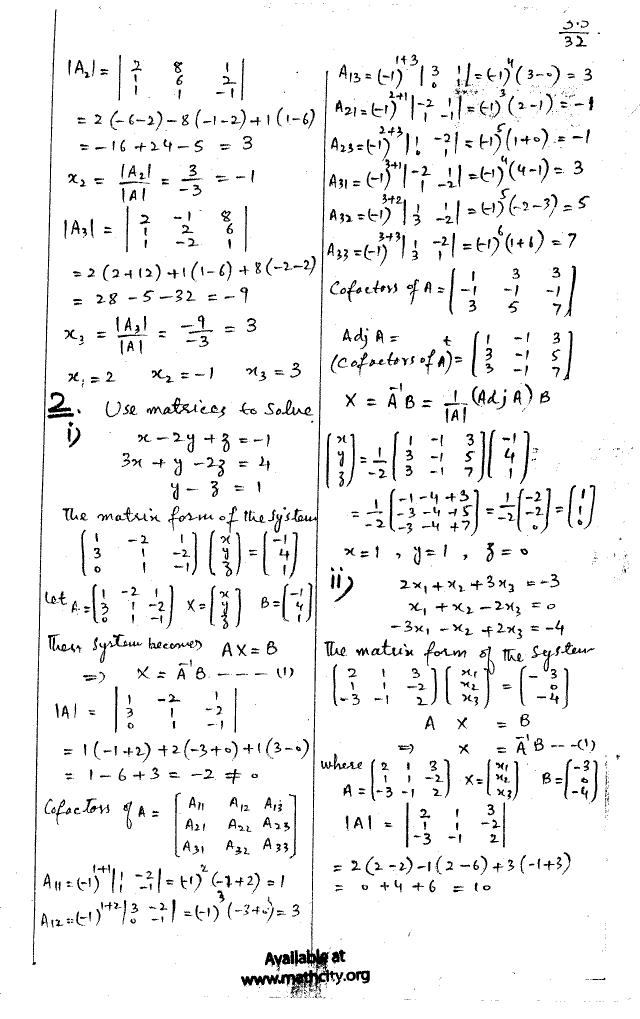 3.5
32
|A₂| = | 2 8 1 |
| 1 6 2 |
| 1 1 -1 |
= 2(-6-2)-8(-1-2)+1(1-6)
= -16+24-5 = 3
x₂ = |A₂|/|A| = 3/-3 = -1
|A₃| = | 2 -1 8 |
| 1 2 6 |
| 1 -2 1 |
= 2(2+12)+1(1-6)+8(-2-2)
= 28-5-32 = -9
x₃ = |A₃|/|A| = -9/-3 = 3
x₁=2 x₂=-1 x₃=3
2. Use matrices to Solve
i) x-2y+z=-1
3x+y-2z=4
y-z=1
The matrix form of the system
[1 -2 1] [x] [-1]
[3 1 -2] [y] = [4]
[0 1 -1] [z] [1]
Let A = [1 -2 1] X = [x] B = [-1]
[3 1 -2] [y] [4]
[0 1 -1] [z] [1]
Then System becomes AX=B
⇒ X = A⁻¹B ---- (1)
|A| = | 1 -2 1 |
| 3 1 -2 |
| 0 1 -1 |
= 1(-1+2)+2(-3+0)+1(3-0)
= 1-6+3 = -2 ≠ 0
Cofactors of A = [A₁₁ A₁₂ A₁₃]
[A₂₁ A₂₂ A₂₃]
[A₃₁ A₃₂ A₃₃]
A₁₁ = (-1)¹⁺¹ |1 -2| = (-1)² (-1+2) = 1
|1 -1|
A₁₂ = (-1)¹⁺² |3 -2| = (-1)³ (-3+0) = 3
|0 -1|
A₁₃ = (-1)¹⁺³ |3 1| = (-1)⁴ (3-0) = 3
|0 1|
A₂₁ = (-1)²⁺¹ |-2 1| = (-1)³ (2-1) = -1
|1 -1|
A₂₃ = (-1)²⁺³ |1 -2| = (-1)⁵ (1+0) = -1
|0 1|
A₃₁ = (-1)³⁺¹ |-2 1| = (-1)⁴ (4-1) = 3
|1 -2|
A₃₂ = (-1)³⁺² |1 1| = (-1)⁵ (-2-3) = 5
|3 -2|
A₃₃ = (-1)³⁺³ |1 -2| = (-1)⁶ (1+6) = 7
|3 1|
Cofactors of A = [1 3 3]
[-1 -1 -1]
[3 5 7]
Adj A =
(Cofactors of A)ᵗ = [1 -1 3]
[3 -1 5]
[3 -1 7]
X = A⁻¹B = 1/|A| (Adj A) B
[x] [1 -1 3] [-1]
[y] = 1/-2 [3 -1 5] [4]
[z] [3 -1 7] [1]
= 1/-2 [-1-4+3] = 1/-2 [-2] = [1]
[-3-4+5] [-2] [1]
[-3-4+7] [0] [0]
x=1 , y=1 , z=0
ii) 2x₁+x₂+3x₃=-3
x₁+x₂-2x₃=0
-3x₁-x₂+2x₃=-4
The matrix form of the System
[2 1 3] [x₁] [-3]
[1 1 -2] [x₂] = [0]
[-3 -1 2] [x₃] [-4]
A X = B
⇒ X = A⁻¹B ---(1)
where A = [2 1 3] X = [x₁] B = [-3]
[1 1 -2] [x₂] [0]
[-3 -1 2] [x₃] [-4]
|A| = | 2 1 3 |
| 1 1 -2 |
| -3 -1 2 |
= 2(2-2)-1(2-6)+3(-1+3)
= 0+4+6 = 10
Available at
www.mathcity.org